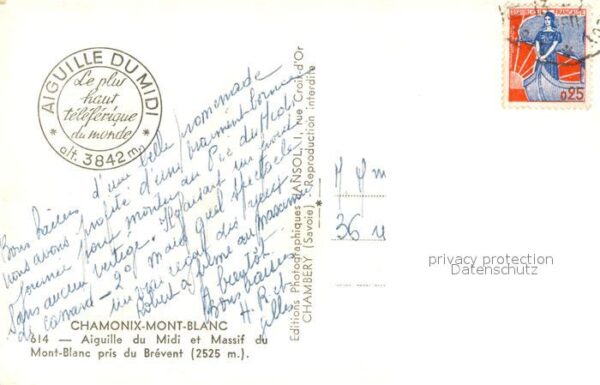 REPUBLIQUE FRANÇAISE
0,25
AIGUILLE DU MIDI
Le plus
haut
téléférique
du monde
* alt. 3842 m *
Bons baisers d'une belle promenade
nous avons profité d'une vraiment bonne
journée pour monter au Pic du Midi
sans aucun vertige.
2° mais quel spectacle
un vrai régal des yeux
Robert
à bientôt
Bons baisers
H.
CHAMONIX-MONT-BLANC
614 — Aiguille du Midi et Massif du
Mont-Blanc pris du Brévent (2525 m.).
Editions Photographiques MANSOL, 1, rue Croix d'Or
CHAMBERY (Savoie) * Reproduction interdite
36
privacy protection
Datenschutz